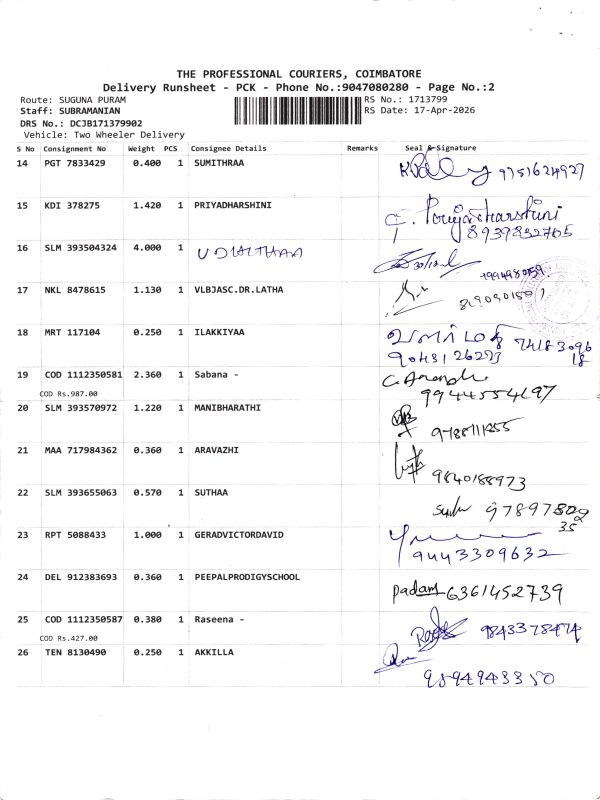 THE PROFESSIONAL COURIERS, COIMBATORE
Delivery Runsheet - PCK - Phone No.:9047080280 - Page No.:2
Route: SUGUNA PURAM
Staff: SUBRAMANIAN
DRS No.: DCJB171379902
Vehicle: Two Wheeler Delivery
RS No.: 1713799
RS Date: 17-Apr-2026
S No Consignment No Weight PCS Consignee Details Remarks Seal & Signature
14 PGT 7833429 0.400 1 SUMITHRAA 9751624927
15 KDI 378275 1.420 1 PRIYADHARSHINI
8939832705
16 SLM 393504324 4.000 1
17 NKL 8478615 1.130 1 VLBJASC.DR.LATHA
18 MRT 117104 0.250 1 ILAKKIYAA 74183096
9043126273 18
19 COD 1112350581 2.360 1 Sabana -
COD Rs.987.00 9944554697
20 SLM 393570972 1.220 1 MANIBHARATHI
21 MAA 717984362 0.360 1 ARAVAZHI
9840188973
22 SLM 393655063 0.570 1 SUTHAA
23 RPT 5088433 1.000 1 GERADVICTORDAVID
9443309632
24 DEL 912383693 0.360 1 PEEPALPRODIGYSCHOOL
Padam 6361452739
25 COD 1112350587 0.380 1 Raseena - 9843378474
COD Rs.427.00
26 TEN 8130490 0.250 1 AKKILLA
9594943350